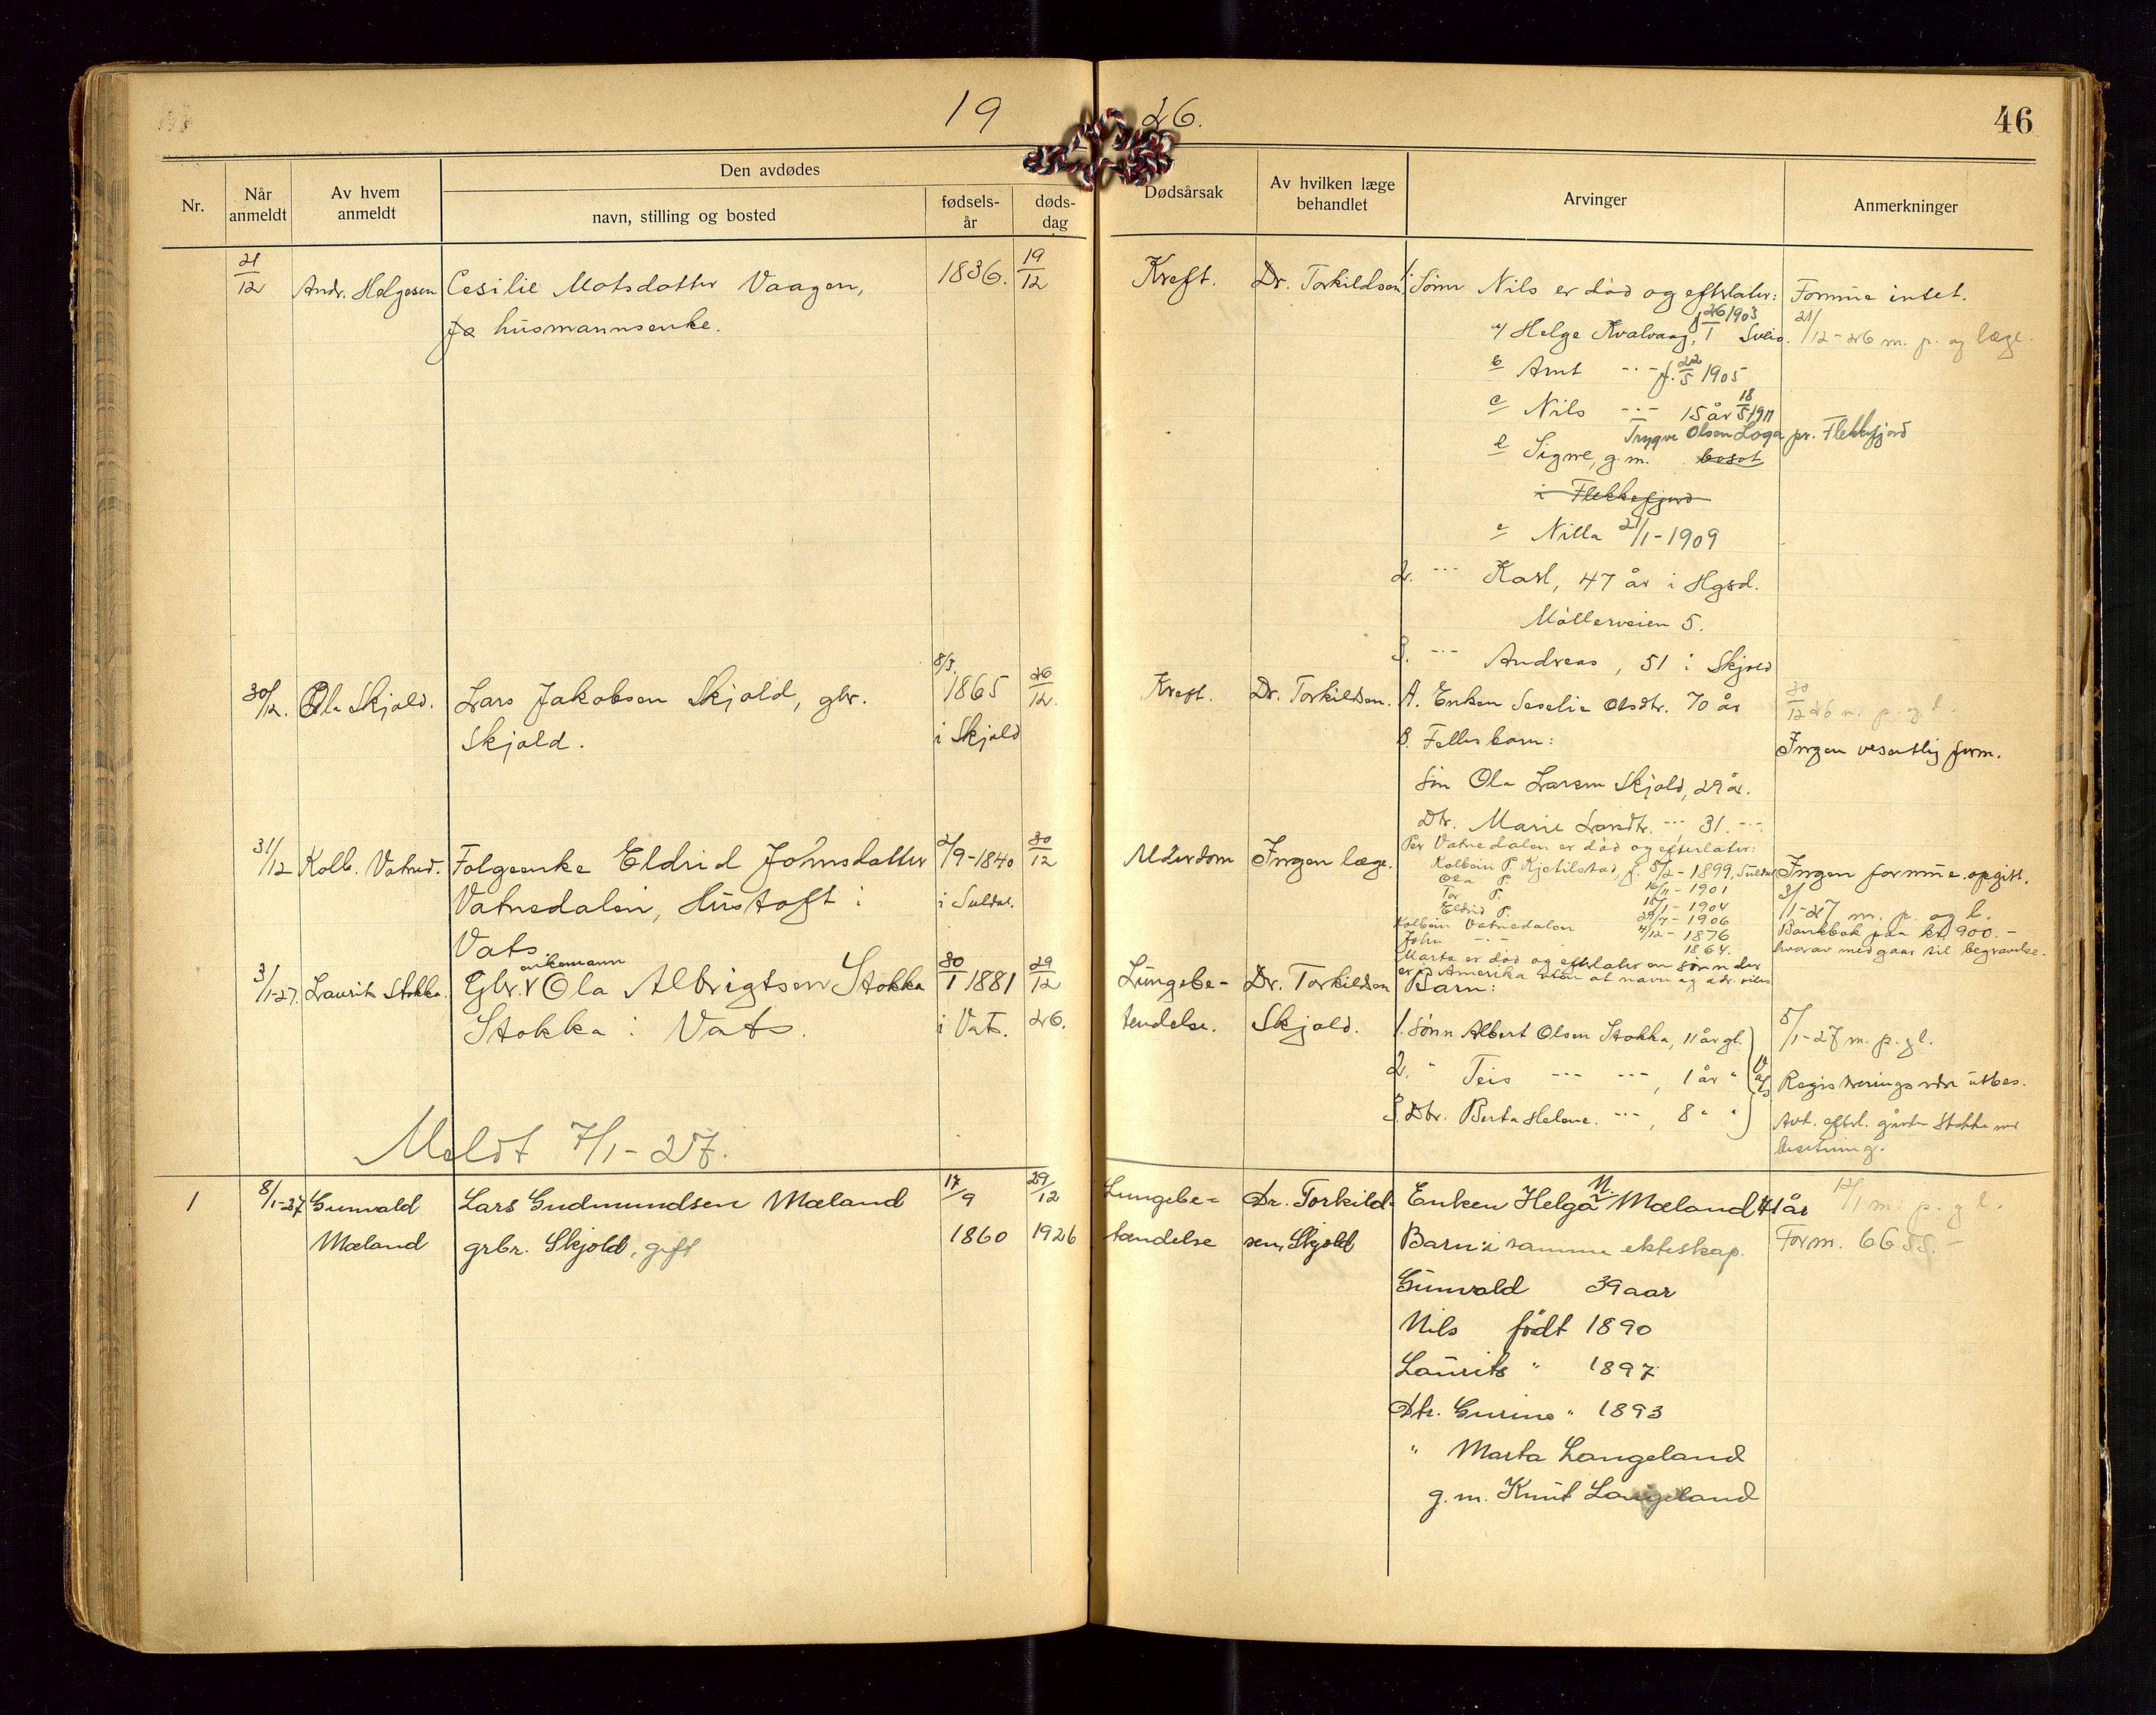 19 26.
46
Nr.
Når anmeldt
Av hvem anmeldt
Den avdødes
navn, stilling og bosted
fødsels-år
døds-dag
Dødsårsak
Av hvilken læge behandlet
Arvinger
Anmerkninger
21/12
Andr. Helgesen
Cesilie Matsdatter Vaagen,
husmannsenke.
1836.
19/12
Kreft.
Dr. Torkildsen
1. Sønn Nils er død og efterlater:
a/ Helge Kvalvaag, f 26/1 1903 Sveio.
b Arnt -"- f. 22/5 1905
c Nils -"- 15 år 18/5 1911
Trygve Olsen Loga pr. Flekkefjord
d Signe, g.m. bosat
i Flekkefjord
e Nilla 21/1-1909
2. -"- Karl, 47 år i Hgsd.
Möllerveien 5.
3. -"- Andreas, 51 i Skjold
Formue intet.
21/12-26 m. p. og læge.
30/12.
Ola Skjold.
Lars Jakobsen Skjold, gbr.
Skjold.
8/3. 1865
i Skjold
26/12.
Kreft.
Dr. Torkildsen.
A. Enken Seselie Olsdtr. 70 år
B. Fellesbarn:
Søn Ola Larsen Skjold, 29 år.
Dtr. Marie Larsdtr. -"- 31. -"-
30/12 26 m. p. og l.
Ingen vesentlig form.
31/12
Kolb. Vatned.
Folgeenke Eldrid Johnsdatter
Vatnedalen, Hustoft i
Vats
2/9-1840
i Suldal.
30/12
Alderdom
Ingen læge.
Per Vatnedalen er død og efterlater:
Kolbein P. Kjetilstad, f. 5/2-1899, Suldal
Ola P. 16/11-1901
Tor P. 15/1-1904
Eldrid P. 29/7-1906
Kolbein Vatnedalen 4/12-1876
John -"- 1864.
Marta er død og efterlater en sønn der
er i Amerika uten at navn og adr. vites
Ingen formue opgitt.
3/1-27 m. p. og l.
Bankbok paa kr 900.-
hvorav medgaar til begravelse.
3/1-27.
Laurits Stokka.
Gbr. enkemann Ola Albrigtsen Stokka
Stokka i Vats.
30/1 1881
i Vats.
29/12 26.
Lungebe-
tendelse.
Dr. Torkildsen
Skjold.
Barn:
1. Sønn Albert Olsen Stokka, 11 år gl.
2. " Teis -"- -"-, 1 år "
3. Dtr. Berta Helene. -"-, 8 " "
Vats
5/1-27 m. p. g l.
Registrering utbes.
Avd. efterl. gården Stokka med
besetning.
Meldt 7/1-27.
1
8/1-27
Gunvald
Mæland
Lars Gudmundsen Mæland
grbr. Skjold, gift
17/9
1860
29/12
1926
Lungebe-
tændelse
Dr. Torkild-
sen, Skjold
Enken Helga N. Mæland 41 år
Barn i samme ekteskap.
Gunvald 39 aar
Nils född 1890
Laurits " 1897
Dtr. Gurine " 1893
" Marta Langeland
g.m. Knut Langeland
12/1 m. p. g l.
Form. 6655.-